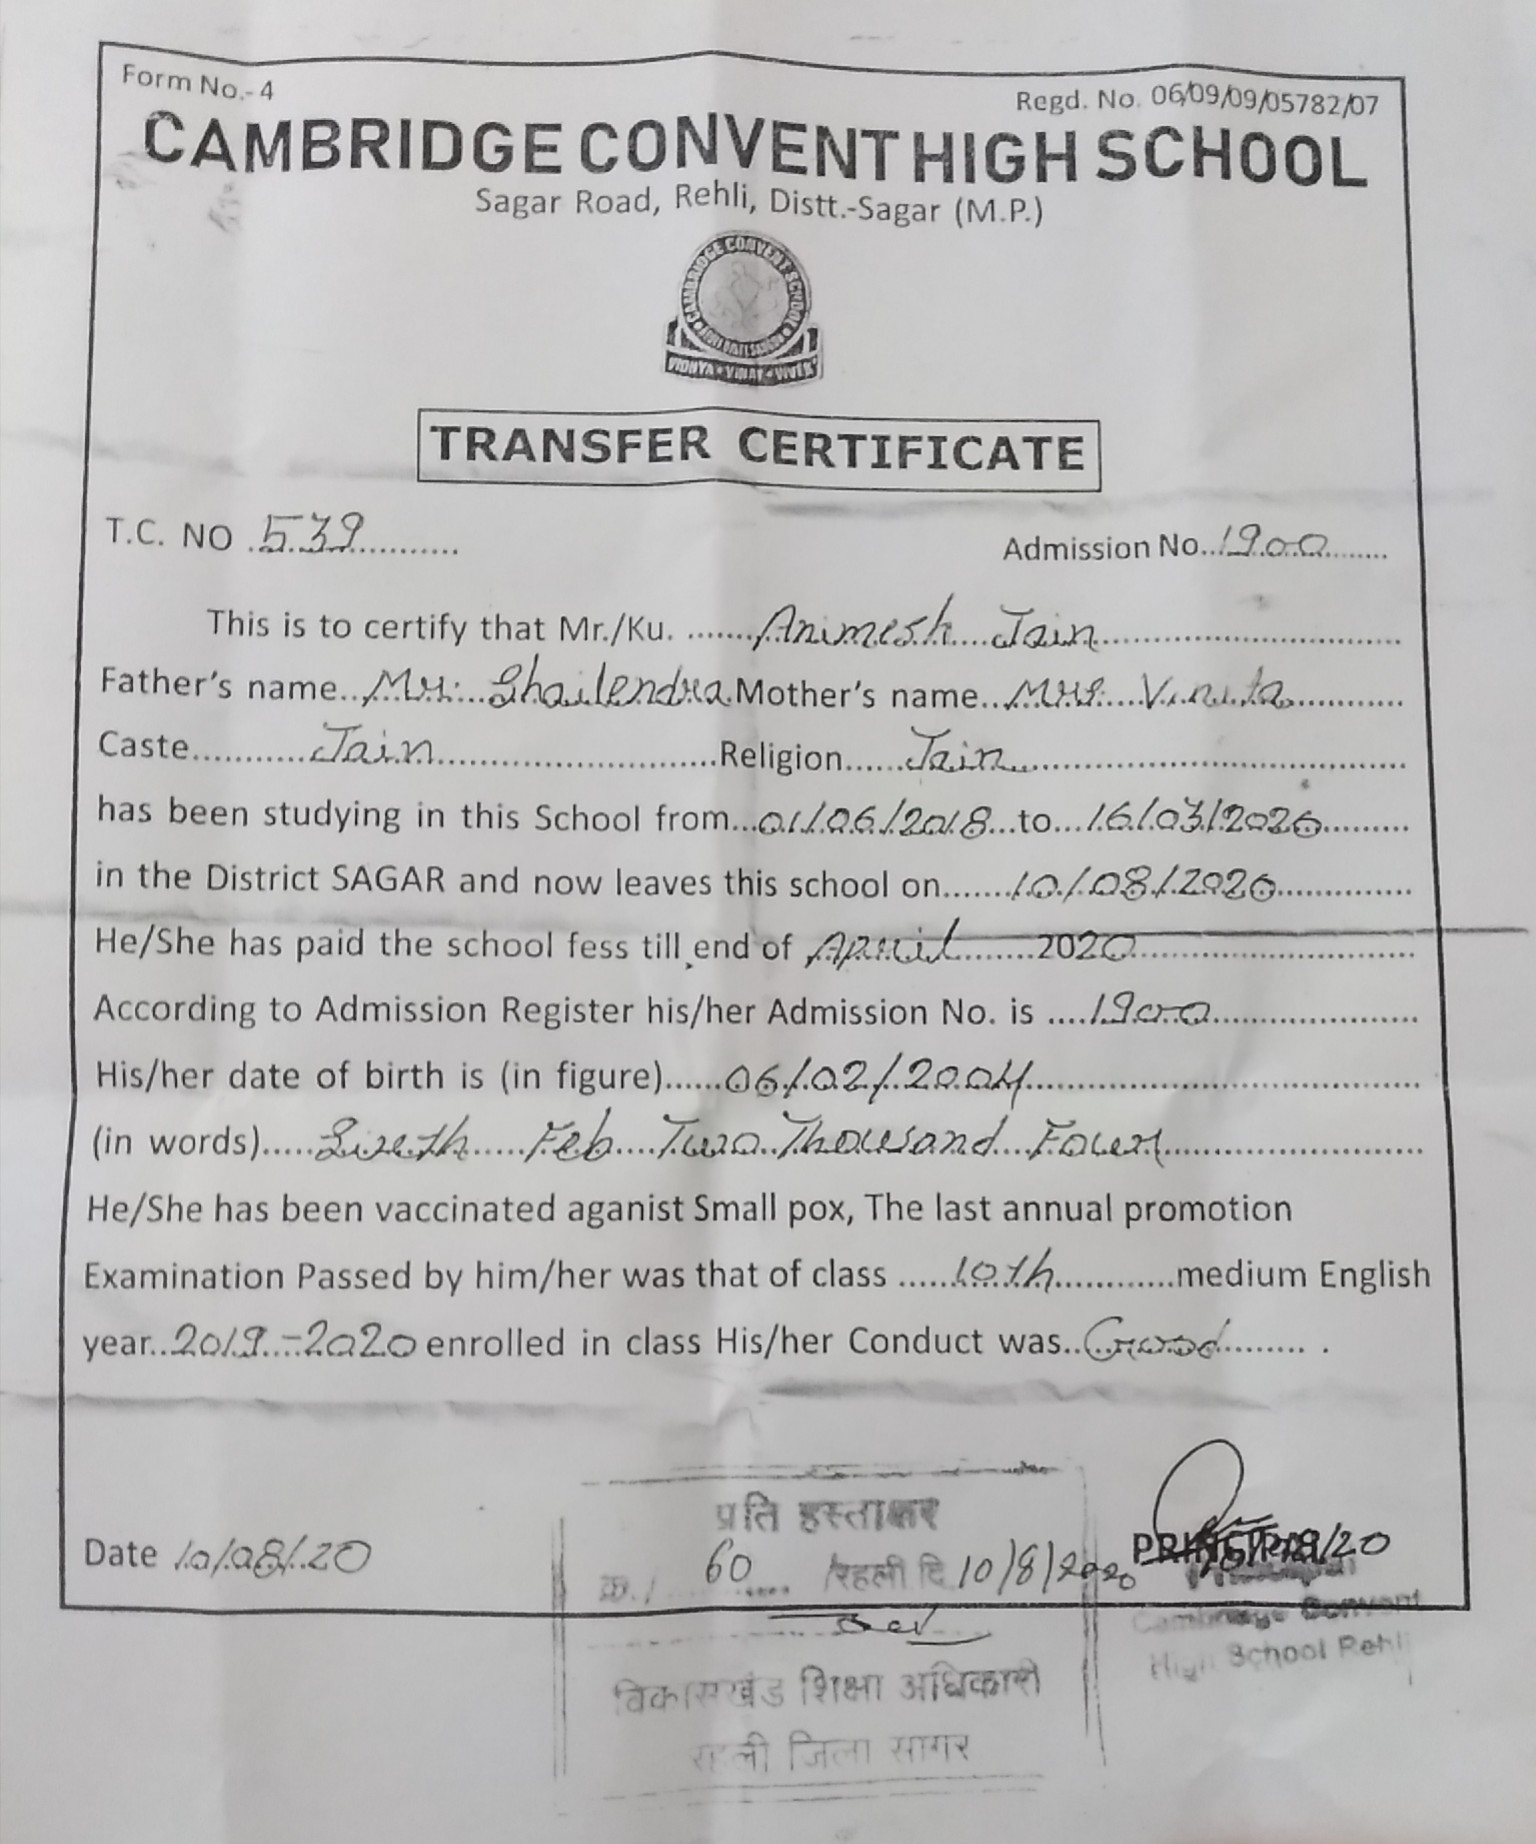 Form No.- 4
Regd. No. 06/09/09/05782/07
CAMBRIDGE CONVENT HIGH SCHOOL
Sagar Road, Rehli, Distt.-Sagar (M.P.)
CAMBRIDGE CONVENT SCHOOL
VIDHYA • VINAY • VIVEK
TRANSFER CERTIFICATE
T.C. NO 539
Admission No. 1900
This is to certify that Mr./Ku. Animesh Jain
Father's name Mr. Shailendra Mother's name Mrs. Vinita
Caste Jain Religion Jain
has been studying in this School from 01/06/2018 to 16/03/2020
in the District SAGAR and now leaves this school on 10/08/2020
He/She has paid the school fess till end of April 2020
According to Admission Register his/her Admission No. is 1900
His/her date of birth is (in figure) 06/02/2004
(in words) Sixth Feb Two Thousand Four
He/She has been vaccinated aganist Small pox, The last annual promotion
Examination Passed by him/her was that of class 10th medium English
year 2019-2020 enrolled in class His/her Conduct was Good .
Date 10/08/20
प्रति हस्ताक्षर
क्र./ 60 /रहली दि 10/8/2020
विकासखंड शिक्षा अधिकारी
रहली जिला सागर
PRINCIPAL
Principal
Cambridge Convent
High School Rehli